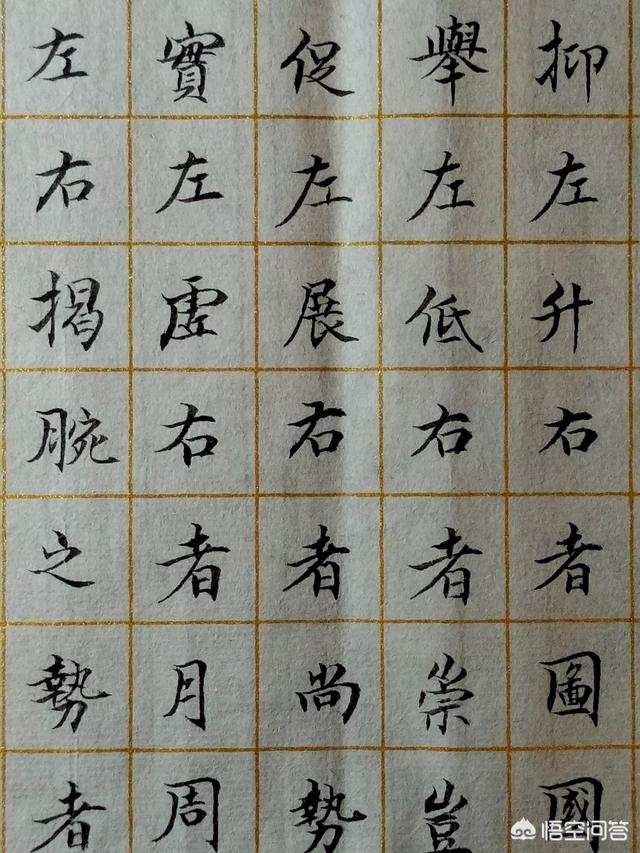 抑左升右者圖國
舉左低右者崇豈
促左展右者尚勢
實左虛右者月周
左右揭腕之勢者
悟空问答